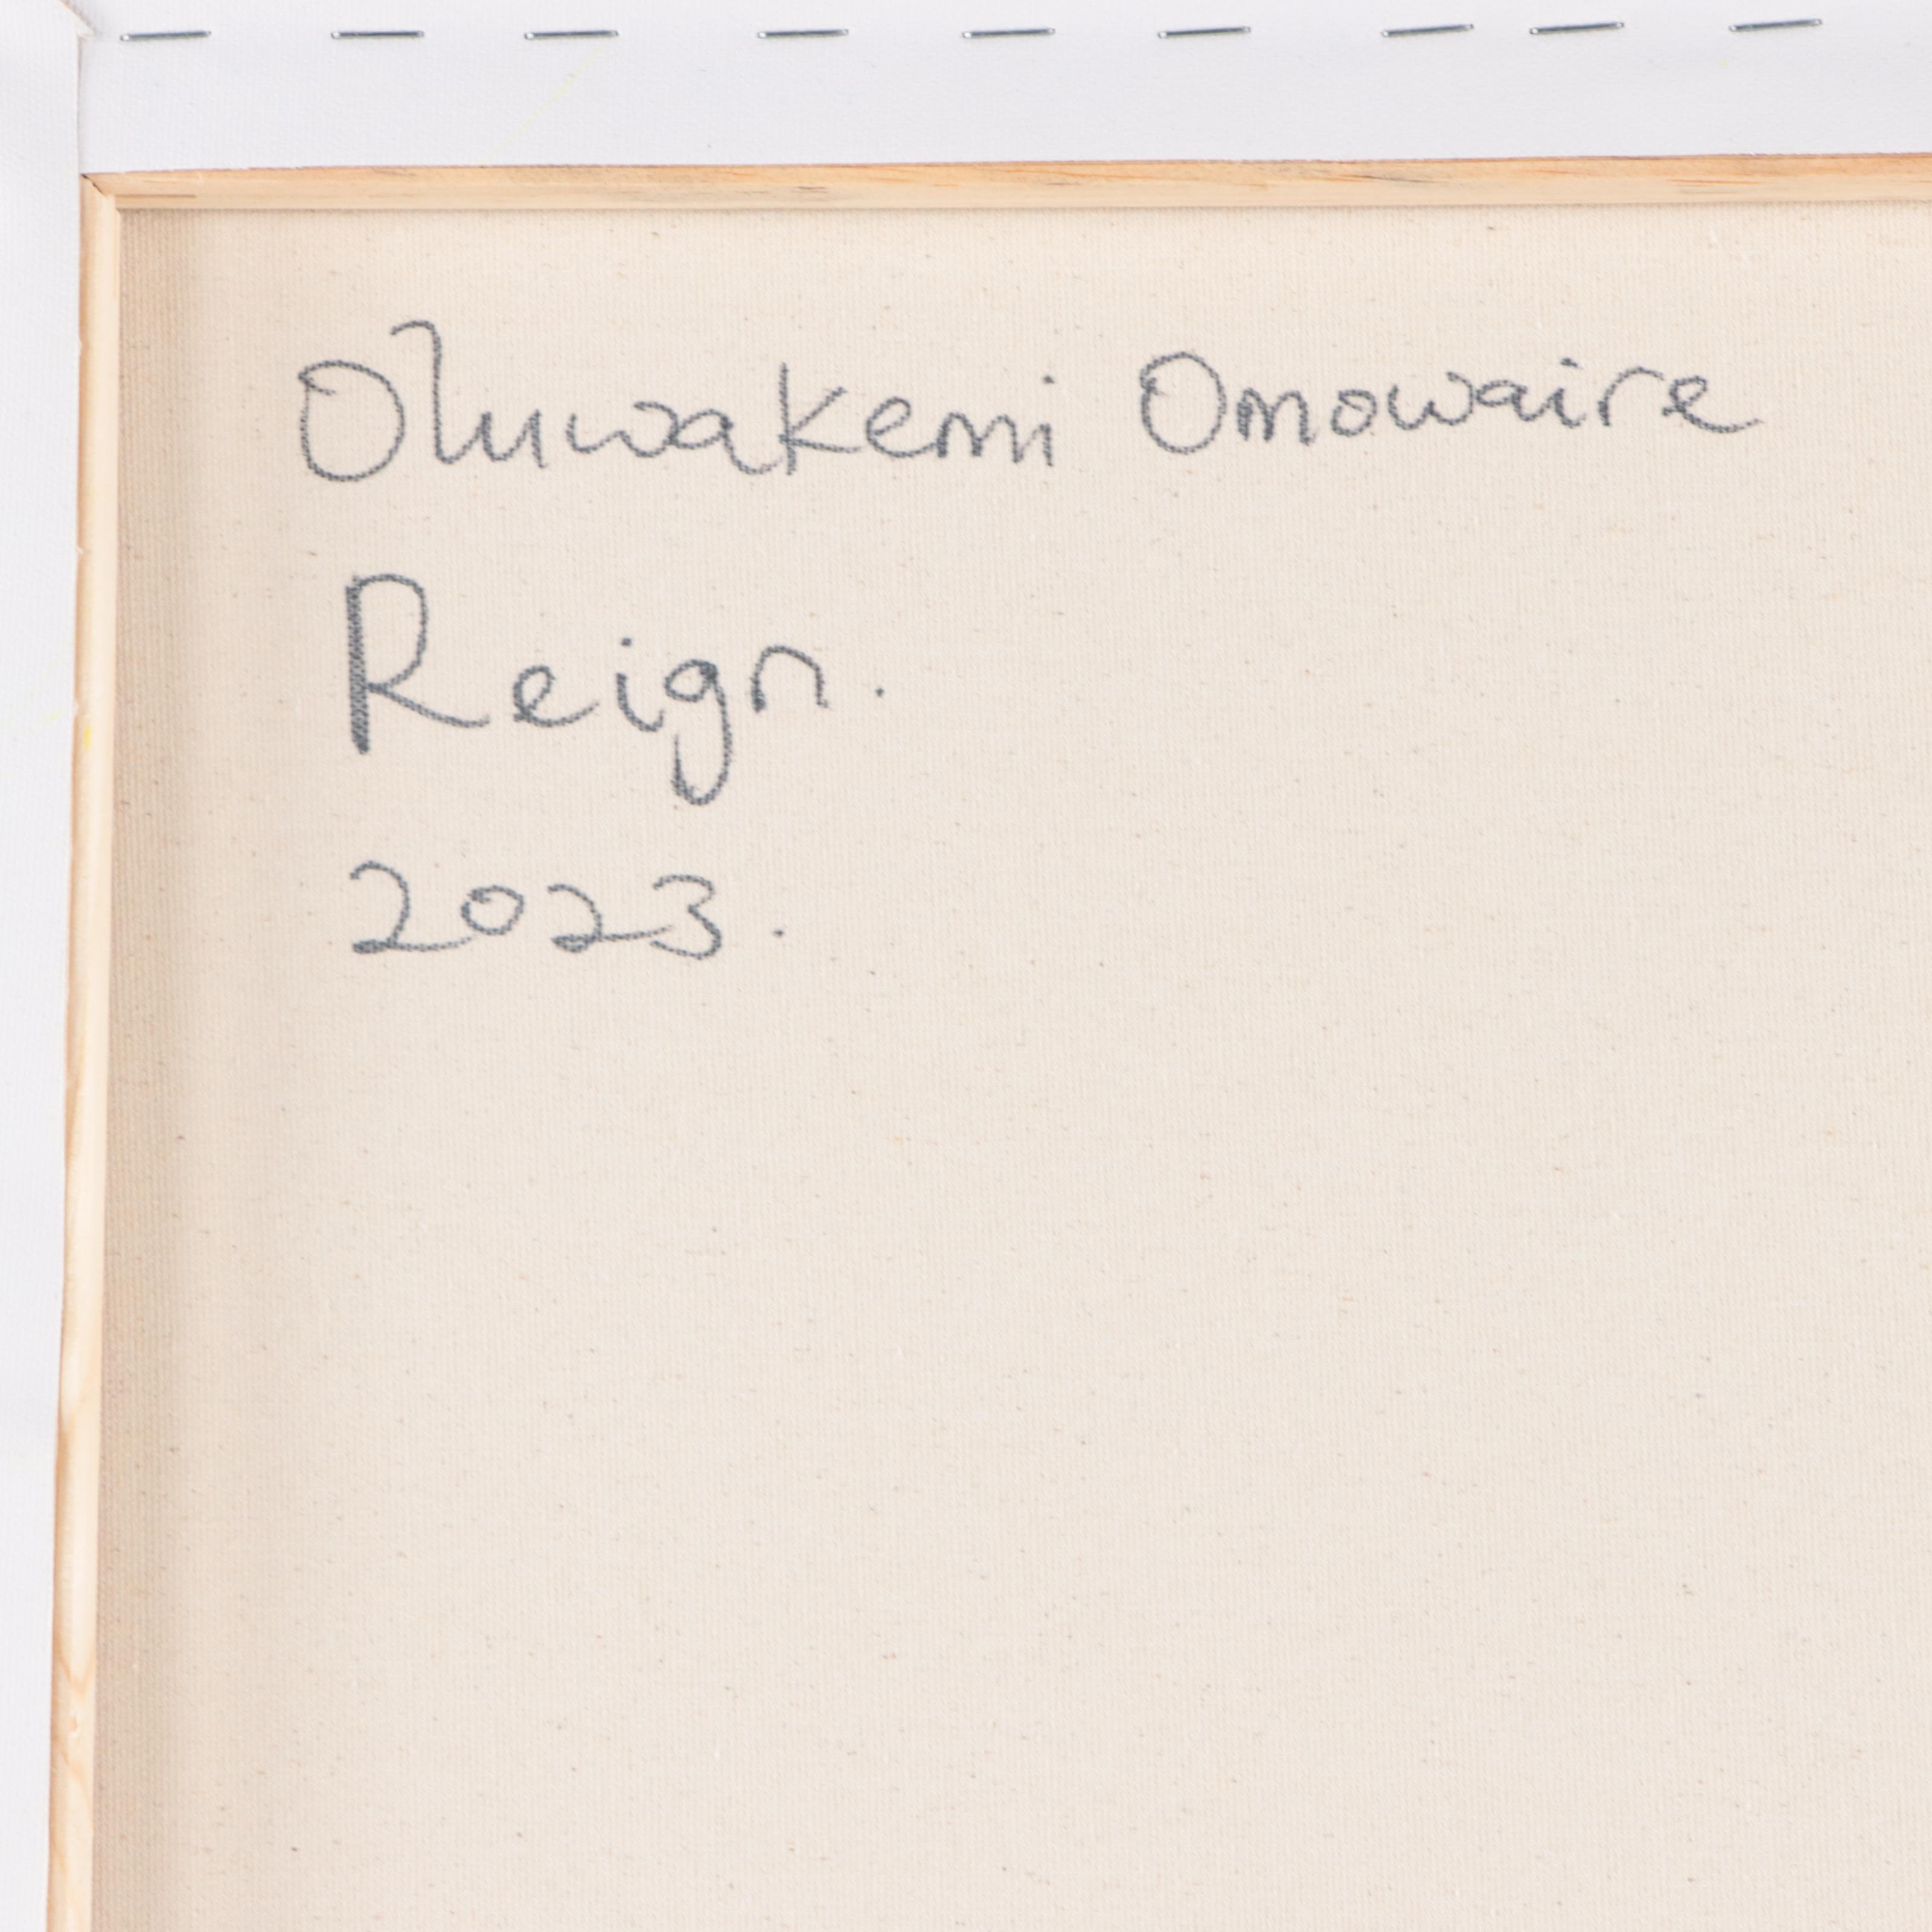 Oluwakemi Omowaire
Reign.
2023.